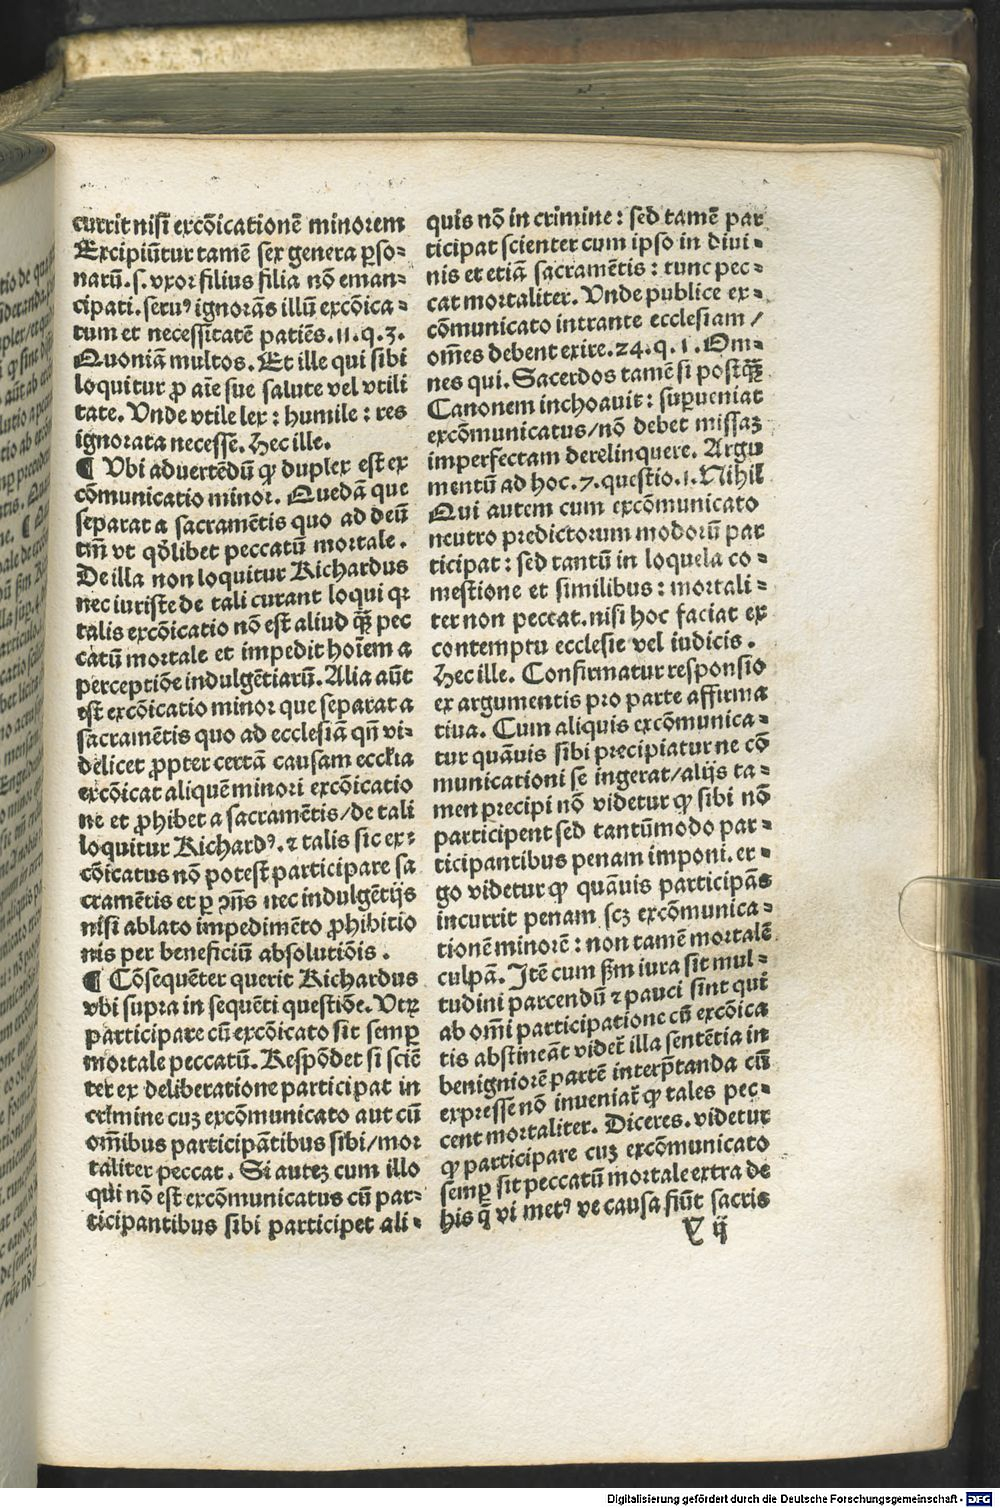 currit nisi excõicationẽ minorem
Excipiũtur tamẽ sex genera p̱so-
narũ. s. vxor filius filia nõ eman-
cipati. seruꝰ ignorãs illũ excõica-
tum et necessitatẽ patiẽs. 11. q. 3.
Quoniã multos. Et ille qui sibi
loquitur ꝓ aĩe sue salute vel vtili
tate. Vnde vtile lex : humile : res
ignorata necesse. Hec ille.
¶ Vbi aduertẽdũ ꝙ duplex est ex
cõmunicatio minor. Quedã que
separat a sacramẽtis quo ad deũ
tm̃ vt qđlibet peccatũ mortale.
De illa non loquitur Richardus
nec iuriste de tali curant loqui qꝛ
talis excõicatio nõ est aliud qᷓꝫ pec
catũ mortale et impedit hoĩem a
perceptiõe indulgẽtiarũ. Alia aũt
est excõicatio minor que separat a
sacramẽtis quo ad ecclesiã qñ vi-
delicet ꝓpter certã causam eccl̃ia
excõicat aliquẽ minori excõicatio
ne et ꝓhibet a sacramẽtis/de tali
loquitur Richardꝰ. ⁊ talis sic ex-
cõicatus nõ potest participare sa
cramẽtis et ꝑ ↄñs nec indulgẽtijs
nisi ablato impedimẽto ꝓhibitio
nis per beneficiũ absolutiõis.
¶ Cõsequẽter querit Richardus
vbi supra in sequẽti questiõe. Vtꝝ
participare cũ excõicato sit semꝑ
mortale peccatũ. Respõdet si sciẽ
ter ex deliberatione participat in
crimine cuꝫ excõmunicato aut cũ
om̃ibus participãtibus sibi/mor
taliter peccat. Si auteꝫ cum illo
qui nõ est excõmunicatus cũ par-
ticipantibus sibi participet ali-
quis nõ in crimine : sed tamẽ par
ticipat scienter cum ipso in diui-
nis et etiã sacramẽtis : tunc pec-
cat mortaliter. Vnde publice ex-
cõmunicato intrante ecclesiam/
om̃es debent exire. 24. q. 1. Om-
nes qui. Sacerdos tamẽ si postqᷓꝫ
Canonem inchoauit : suꝑueniat
excõmunicatus/nõ debet missaꝫ
imperfectam derelinquere. Argu
mentũ ad hoc. 7. questio. 1. Nihil
Qui autem cum excõmunicato
neutro predictorum modorũ par
ticipat : sed tantũ in loquela co-
mestione et similibus : mortali-
ter non peccat. nisi hoc faciat ex
contemptu ecclesie vel iudicis.
Hec ille. Confirmatur responsio
ex argumentis pro parte affirma
tiua. Cum aliquis excõmunica-
tur quãuis sibi precipiatur ne cõ
municationi se ingerat/alijs ta-
men precipi nõ videtur ꝙ sibi nõ
participent sed tantũmodo par-
ticipantibus penam imponi. er-
go videtur ꝙ quãuis participãs
incurrit penam scꝫ excõmunica-
tionẽ minorẽ : non tamẽ mortalẽ
culpã. Itẽ cum ẜm iura sit mul-
tudini parcendũ ⁊ pauci sint qui
ab om̃i participatione cũ excõica
tis abstineãt videt᷑ illa sentẽtia in
benigniorẽ partẽ interp̃tanda cũ
expresse nõ inueniat᷑ ꝙ tales pec-
cent mortaliter. Diceres. videtur
ꝙ participare cuꝫ excõmunicato
semꝑ sit peccatũ mortale extra de
his q̃ vi metꝰ ve causa fiũt sacris
Y ij
Digitalisierung gefördert durch die Deutsche Forschungsgemeinschaft - DFG